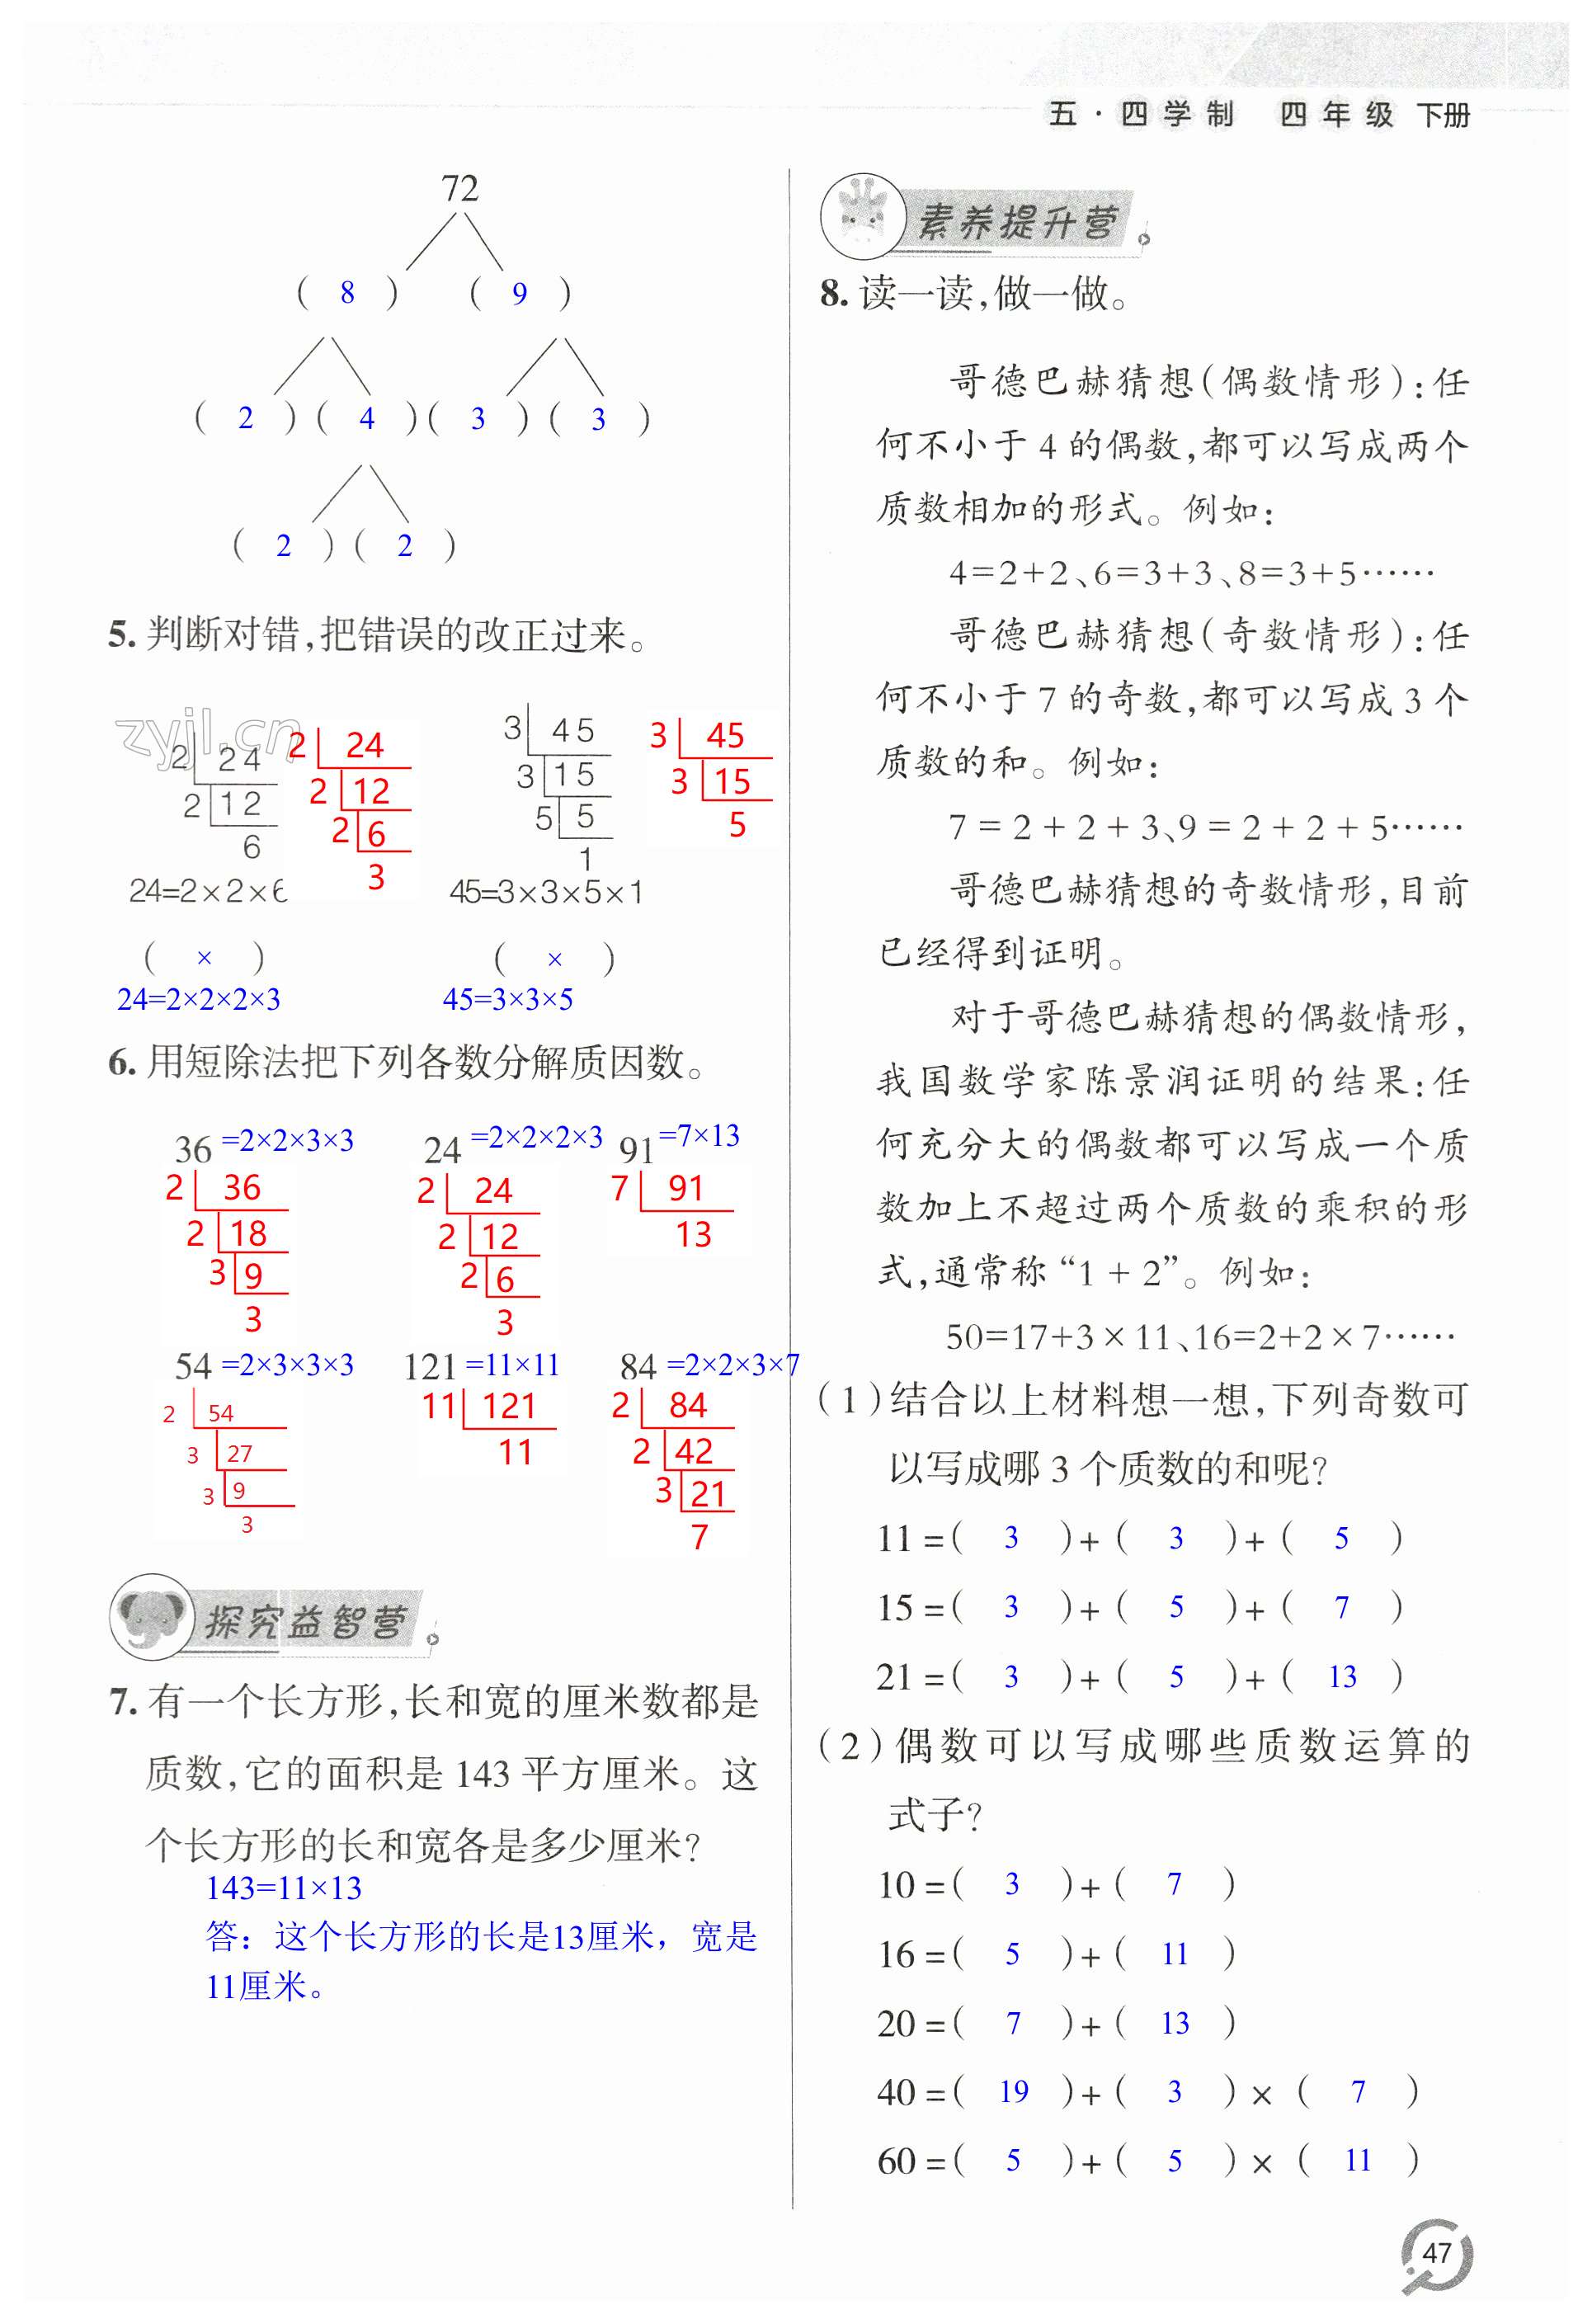 五·四学制 四年级 下册
72
( 8 ) ( 9 )
( 2 ) ( 4 ) ( 3 ) ( 3 )
( 2 ) ( 2 )
5. 判断对错,把错误的改正过来。
zyjl.cn
2 24
2 12
6
24=2×2×6
2 24
2 12
2 6
3
3 45
3 15
5 5
1
45=3×3×5×1
3 45
3 15
5
( × ) ( × )
24=2×2×2×3 45=3×3×5
6. 用短除法把下列各数分解质因数。
36 =2×2×3×3 24 =2×2×2×3 91 =7×13
2 36
2 18
3 9
3
2 24
2 12
2 6
3
7 91
13
54 =2×3×3×3 121 =11×11 84 =2×2×3×7
2 54
3 27
3 9
3
11 121
11
2 84
2 42
3 21
7
探究益智营
7. 有一个长方形,长和宽的厘米数都是
质数,它的面积是 143 平方厘米。这
个长方形的长和宽各是多少厘米?
143=11×13
答：这个长方形的长是13厘米，宽是
11厘米。
素养提升营
8. 读一读,做一做。
哥德巴赫猜想(偶数情形):任
何不小于 4 的偶数,都可以写成两个
质数相加的形式。例如:
4=2+2、6=3+3、8=3+5……
哥德巴赫猜想(奇数情形):任
何不小于 7 的奇数,都可以写成 3 个
质数的和。例如:
7 = 2 + 2 + 3、9 = 2 + 2 + 5……
哥德巴赫猜想的奇数情形,目前
已经得到证明。
对于哥德巴赫猜想的偶数情形,
我国数学家陈景润证明的结果:任
何充分大的偶数都可以写成一个质
数加上不超过两个质数的乘积的形
式,通常称“1 + 2”。例如:
50=17+3×11、16=2+2×7……
(1)结合以上材料想一想,下列奇数可
以写成哪 3 个质数的和呢?
11 =( 3 )+( 3 )+( 5 )
15 =( 3 )+( 5 )+( 7 )
21 =( 3 )+( 5 )+( 13 )
(2)偶数可以写成哪些质数运算的
式子?
10 =( 3 )+( 7 )
16 =( 5 )+( 11 )
20 =( 7 )+( 13 )
40 =( 19 )+( 3 )×( 7 )
60 =( 5 )+( 5 )×( 11 )
47